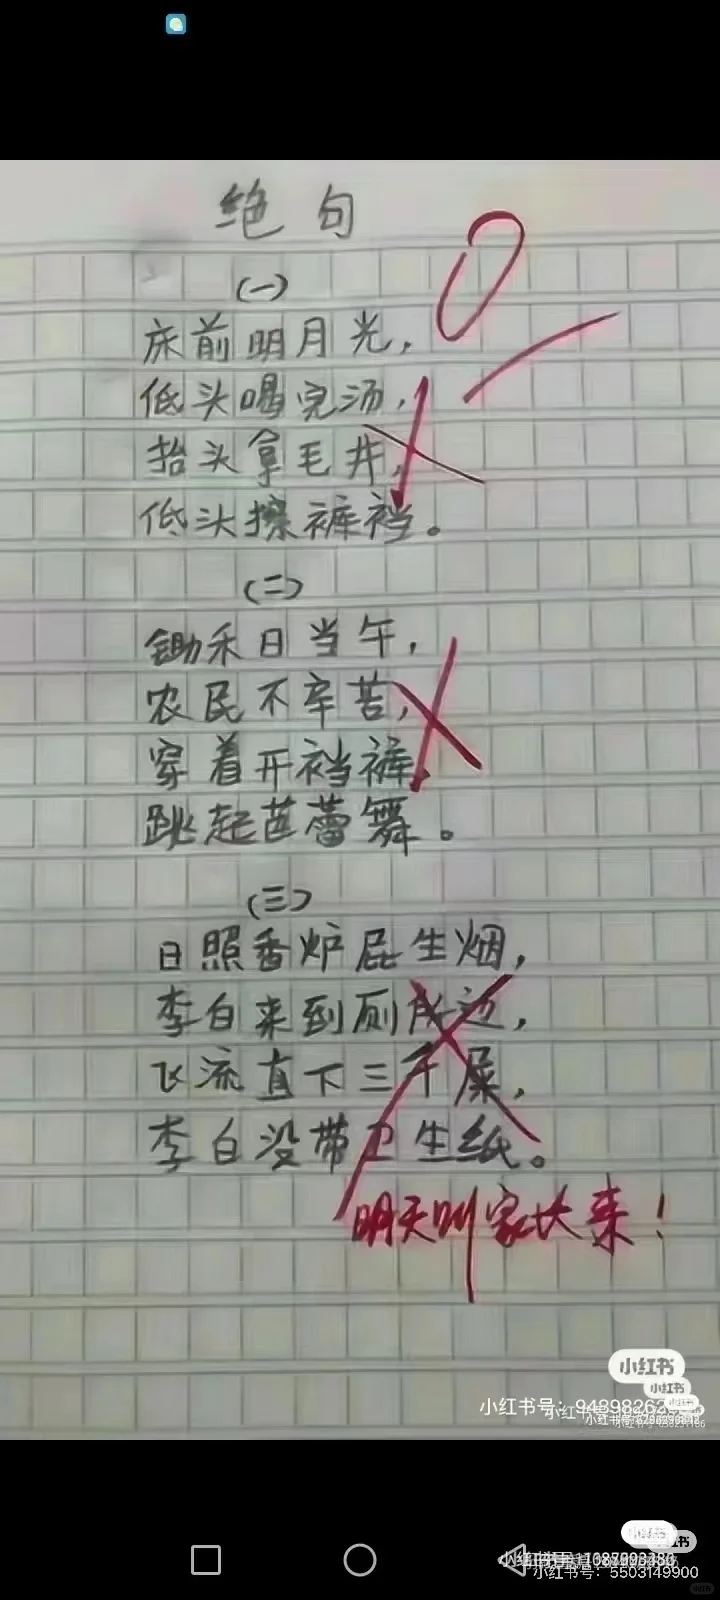 绝句
0
(一)
床前明月光,
低头喝完汤,
抬头拿毛井,
低头擦裤裆。
(二)
锄禾日当午,
农民不辛苦,
穿着开裆裤,
跳起芭蕾舞。
(三)
日照香炉屁生烟,
李白来到厕所边,
飞流直下三千屎,
李白没带卫生纸。
明天叫家长来!
小红书
小红书
小红书号:
小红书
小红书号:5503149900